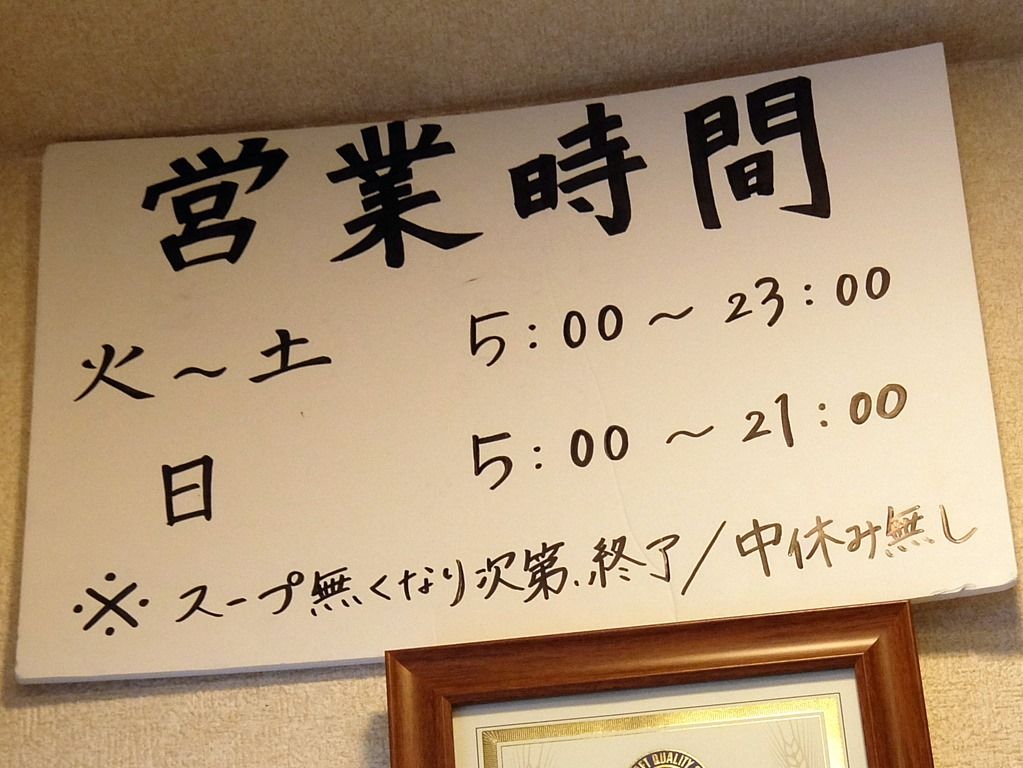 営業時間
火～土 5:00～23:00
日 5:00～21:00
※スープ無くなり次第、終了/中休み無し
QUALITY